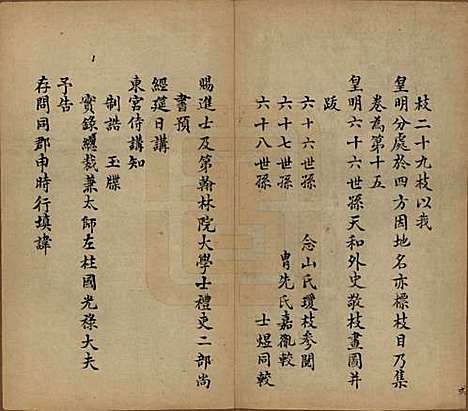 枝二十九枝以我
皇明分處於四方因地名亦標枝目乃集
卷為第十五
皇明六十六世孫天和外史敬枝畫圖并
跋
六十六世孫 念山氏瓊枝參閱
六十七世孫 胄先氏嘉胤較
六十八世孫 士煜同較
賜進士及第翰林院大學士禮吏二部尚
書預
經筵日講
東宮侍講知
制誥 玉牒
實錄總裁兼太師左柱國光祿大夫
予告
存問同郡申時行填諱